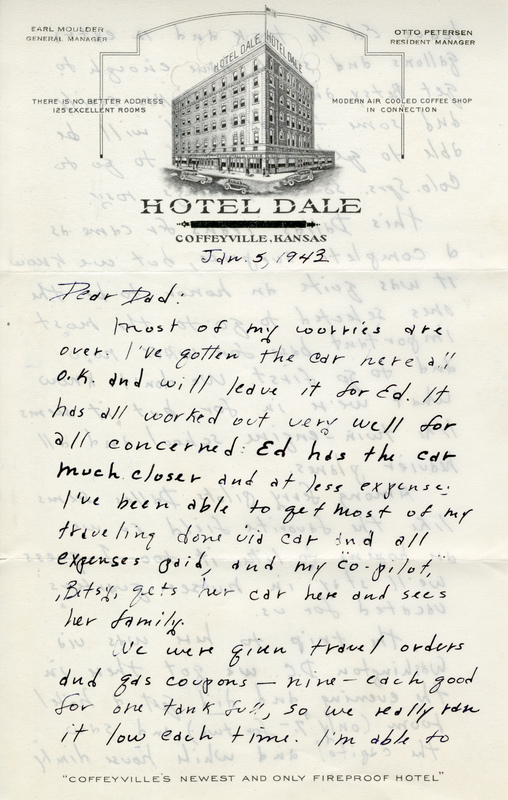 EARL MOULDER
GENERAL MANAGER
OTTO PETERSEN
RESIDENT MANAGER
HOTEL DALE HOTEL DALE
THERE IS NO BETTER ADDRESS
125 EXCELLENT ROOMS
MODERN AIR COOLED COFFEE SHOP
IN CONNECTION
HOTEL DALE
COFFEYVILLE, KANSAS
Jan. 5, 1943
Dear Dad:
Most of my worries are
over. I've gotten the car here all
o.k. and will leave it for Ed. It
has all worked out very well for
all concerned: Ed has the car
much closer and at less expense.
I've been able to get most of my
traveling done via car and all
expenses paid, and my "co-pilot,"
Betsy, gets her car here and sees
her family.
We were given travel orders
and gas coupons — nine — each good
for one tank full, so we really ran
it low each time. I'm able to
"COFFEYVILLE'S NEWEST AND ONLY FIREPROOF HOTEL"